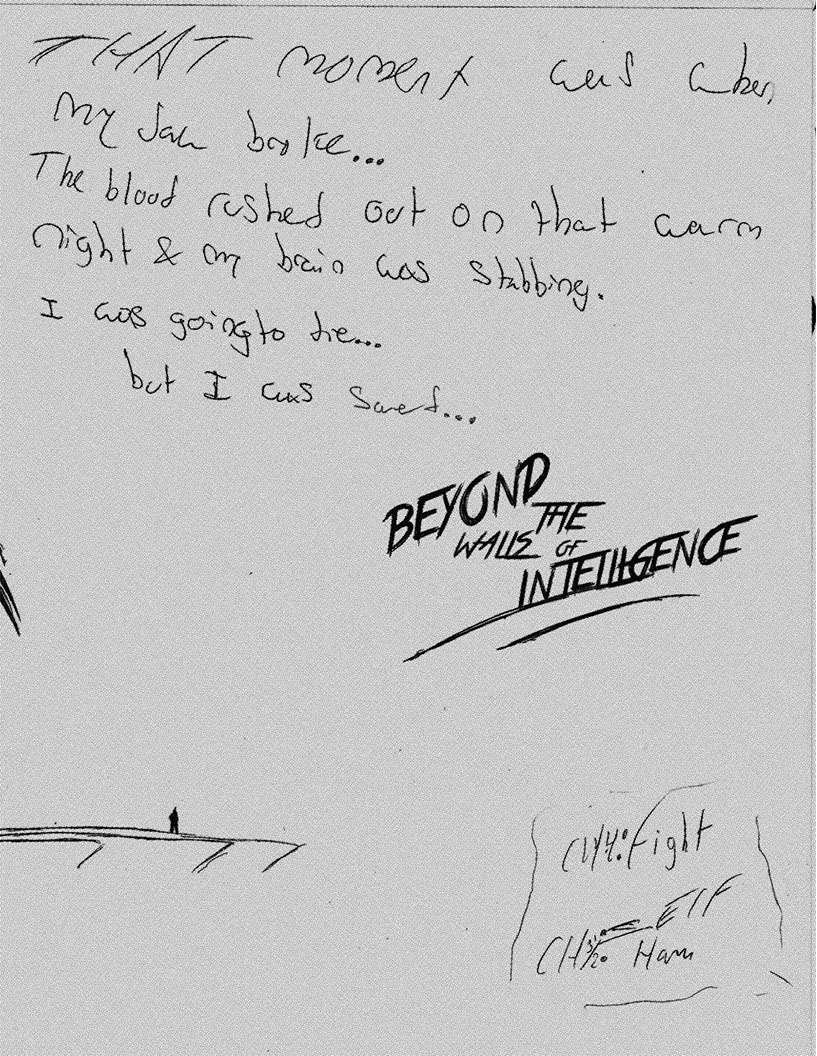 THAT moment was when
my Jaw broke...
The blood rushed out on that warm
night & my brain was stabbing.
I was going to die...
but I was saved...
BEYOND
THE
WALLS OF
INTELLIGENCE
Fight
ETF
Ham